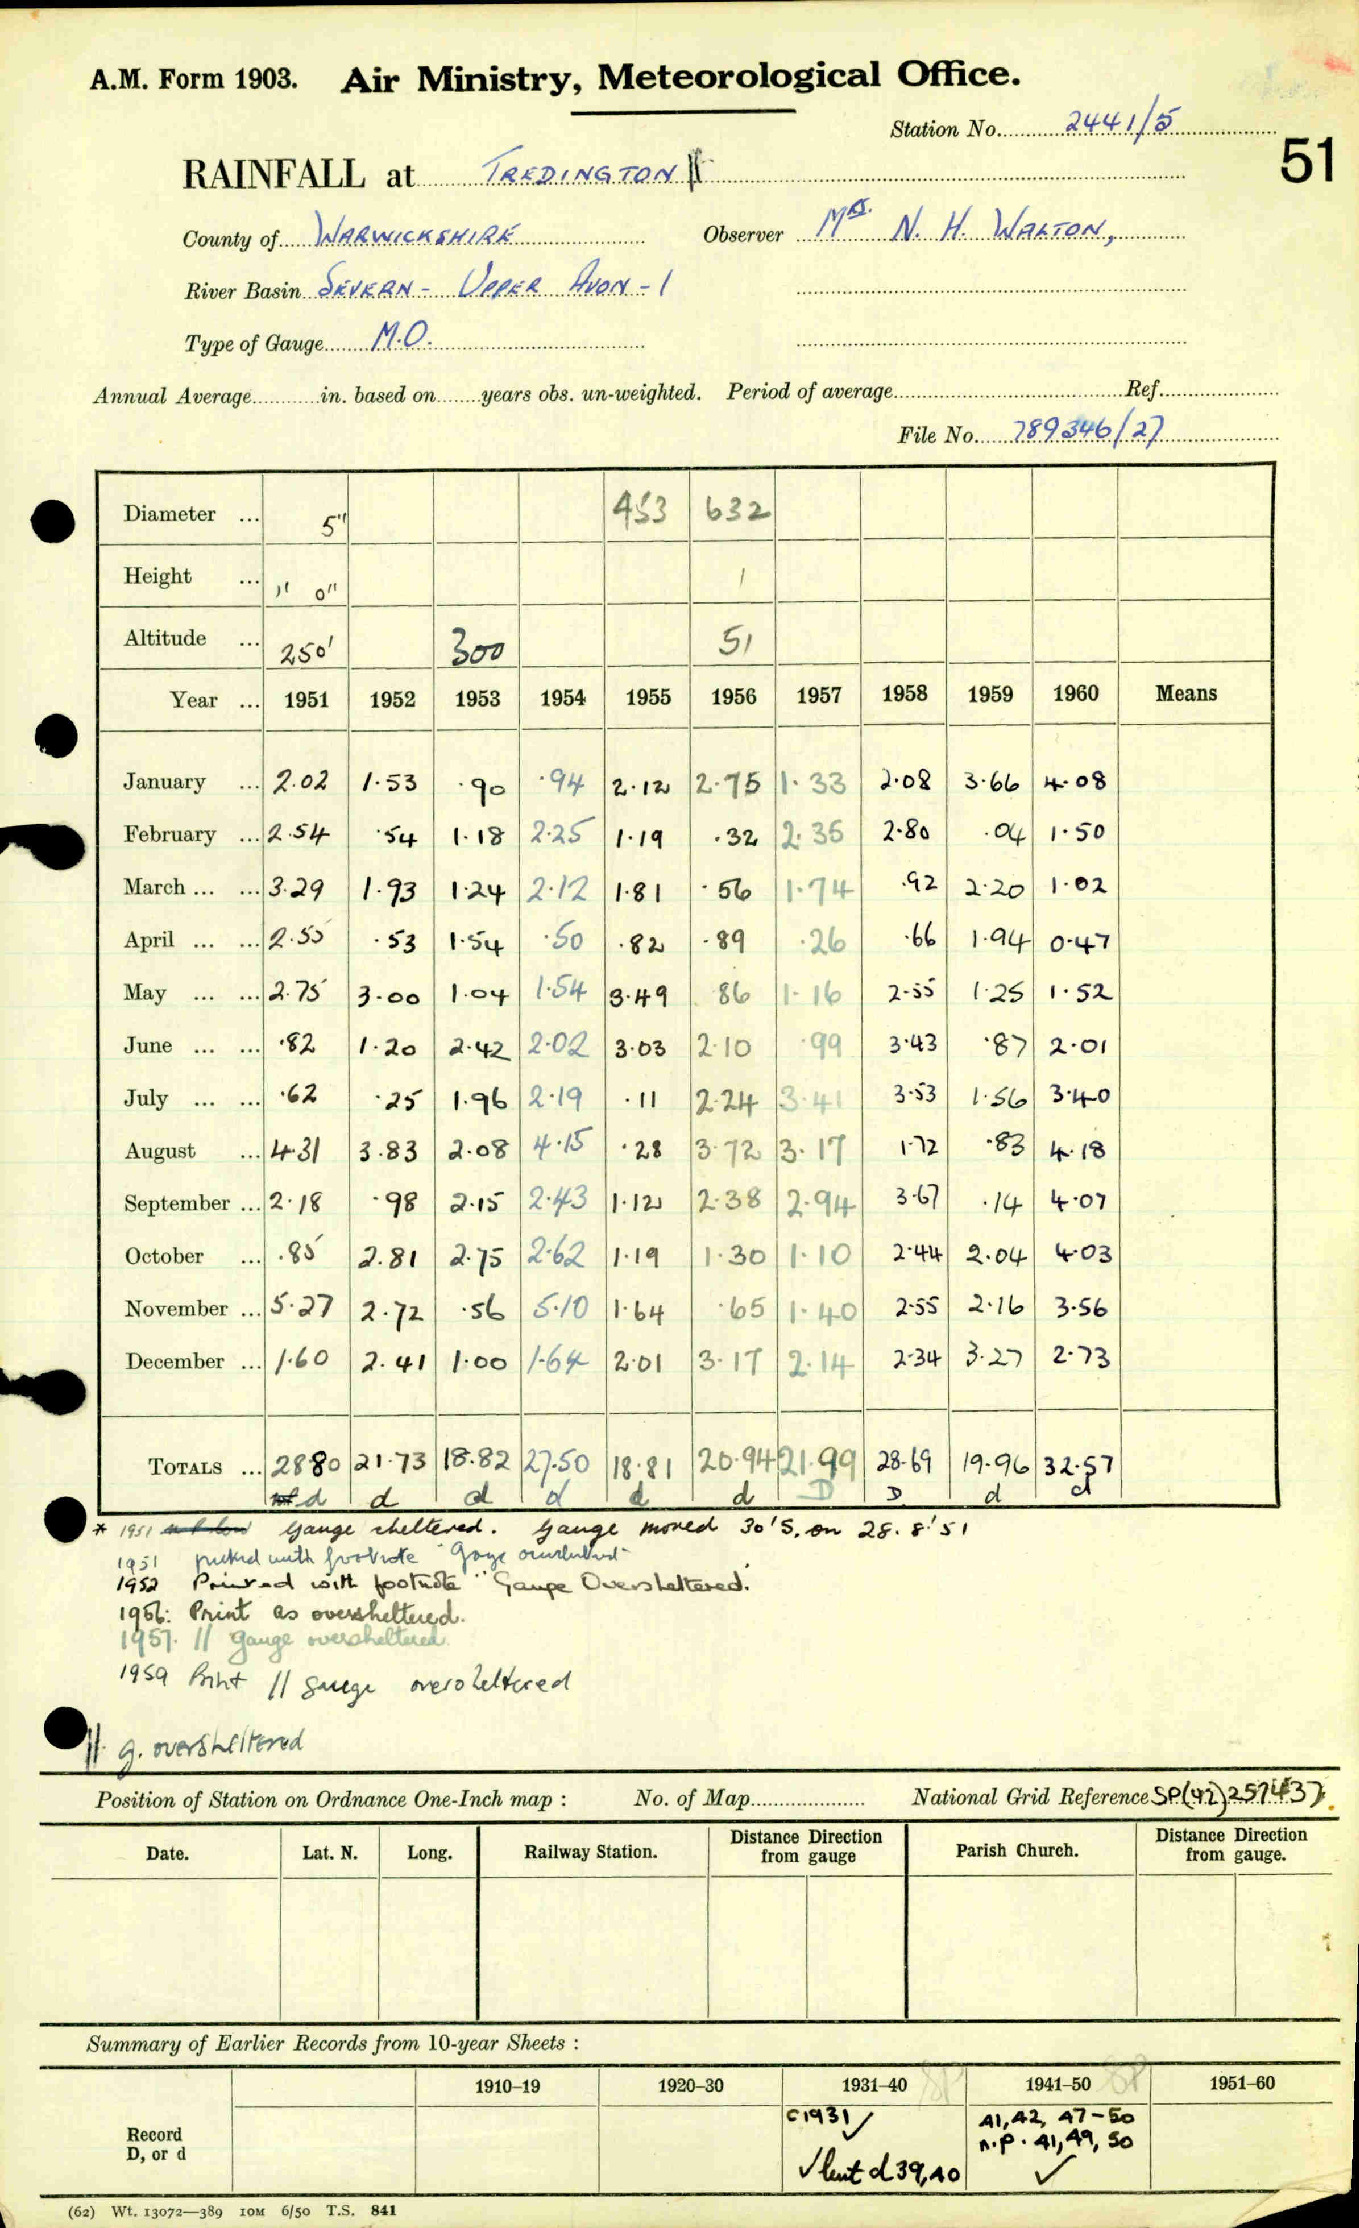 A.M. Form 1903. Air Ministry, Meteorological Office.
Station No. 2441/5
51
RAINFALL at TREDINGTON
County of WARWICKSHIRE Observer Mrs. N. H. WALTON,
River Basin SEVERN - UPPER AVON - 1
Type of Gauge M.O.
Annual Average in. based on years obs. un-weighted. Period of average Ref.
File No. 789346/27
Diameter ... 5" 453 632
Height ... 1' 0" 1
Altitude ... 250' 300 51
Year ... 1951 1952 1953 1954 1955 1956 1957 1958 1959 1960 Means
January ... 2.02 1.53 .90 .94 2.12 2.75 1.33 2.08 3.66 4.08
February ... 2.54 .54 1.18 2.25 1.19 .32 2.35 2.80 .04 1.50
March ... ... 3.29 1.93 1.24 2.12 1.81 .56 1.74 .92 2.20 1.02
April ... ... 2.55 .53 1.54 .50 .82 .89 .26 .66 1.94 0.47
May ... ... 2.75 3.00 1.04 1.54 3.49 86 1.16 2.55 1.25 1.52
June ... ... .82 1.20 2.42 2.02 3.03 2.10 .99 3.43 .87 2.01
July ... ... .62 .25 1.96 2.19 .11 2.24 3.41 3.53 1.56 3.40
August ... 4.31 3.83 2.08 4.15 .28 3.72 3.17 1.72 .83 4.18
September ... 2.18 .98 2.15 2.43 1.12 2.38 2.94 3.67 .14 4.07
October ... .85 2.81 2.75 2.62 1.19 1.30 1.10 2.44 2.04 4.03
November ... 5.27 2.72 .56 5.10 1.64 .65 1.40 2.55 2.16 3.56
December ... 1.60 2.41 1.00 1.64 2.01 3.17 2.14 2.34 3.27 2.73
TOTALS ... 28.80 21.73 18.82 27.50 18.81 20.94 21.99 28.69 19.96 32.57
d d d d d d D D d d
* 1951 Gauge sheltered. Gauge moved 30'S. on 28.8.'51
1951 with footnote "Gauge
1952 Printed with footnote "Gauge Oversheltered.
1956: Print as oversheltered.
1957. // gauge oversheltered.
1959 Print // gauge oversheltered
//. g. oversheltered
Position of Station on Ordnance One-Inch map : No. of Map National Grid Reference SP(42)257437.
Date. Lat. N. Long. Railway Station. Distance Direction from gauge Parish Church. Distance Direction from gauge.
Summary of Earlier Records from 10-year Sheets :
1910–19 1920–30 1931–40 1941–50 1951–60
Record D, or d
c1931 ✓
✓ but d 39,40
41,42, 47-50
n.p. 41,49,50
✓
(62) Wt. 13072—389 10M 6/50 T.S. 841